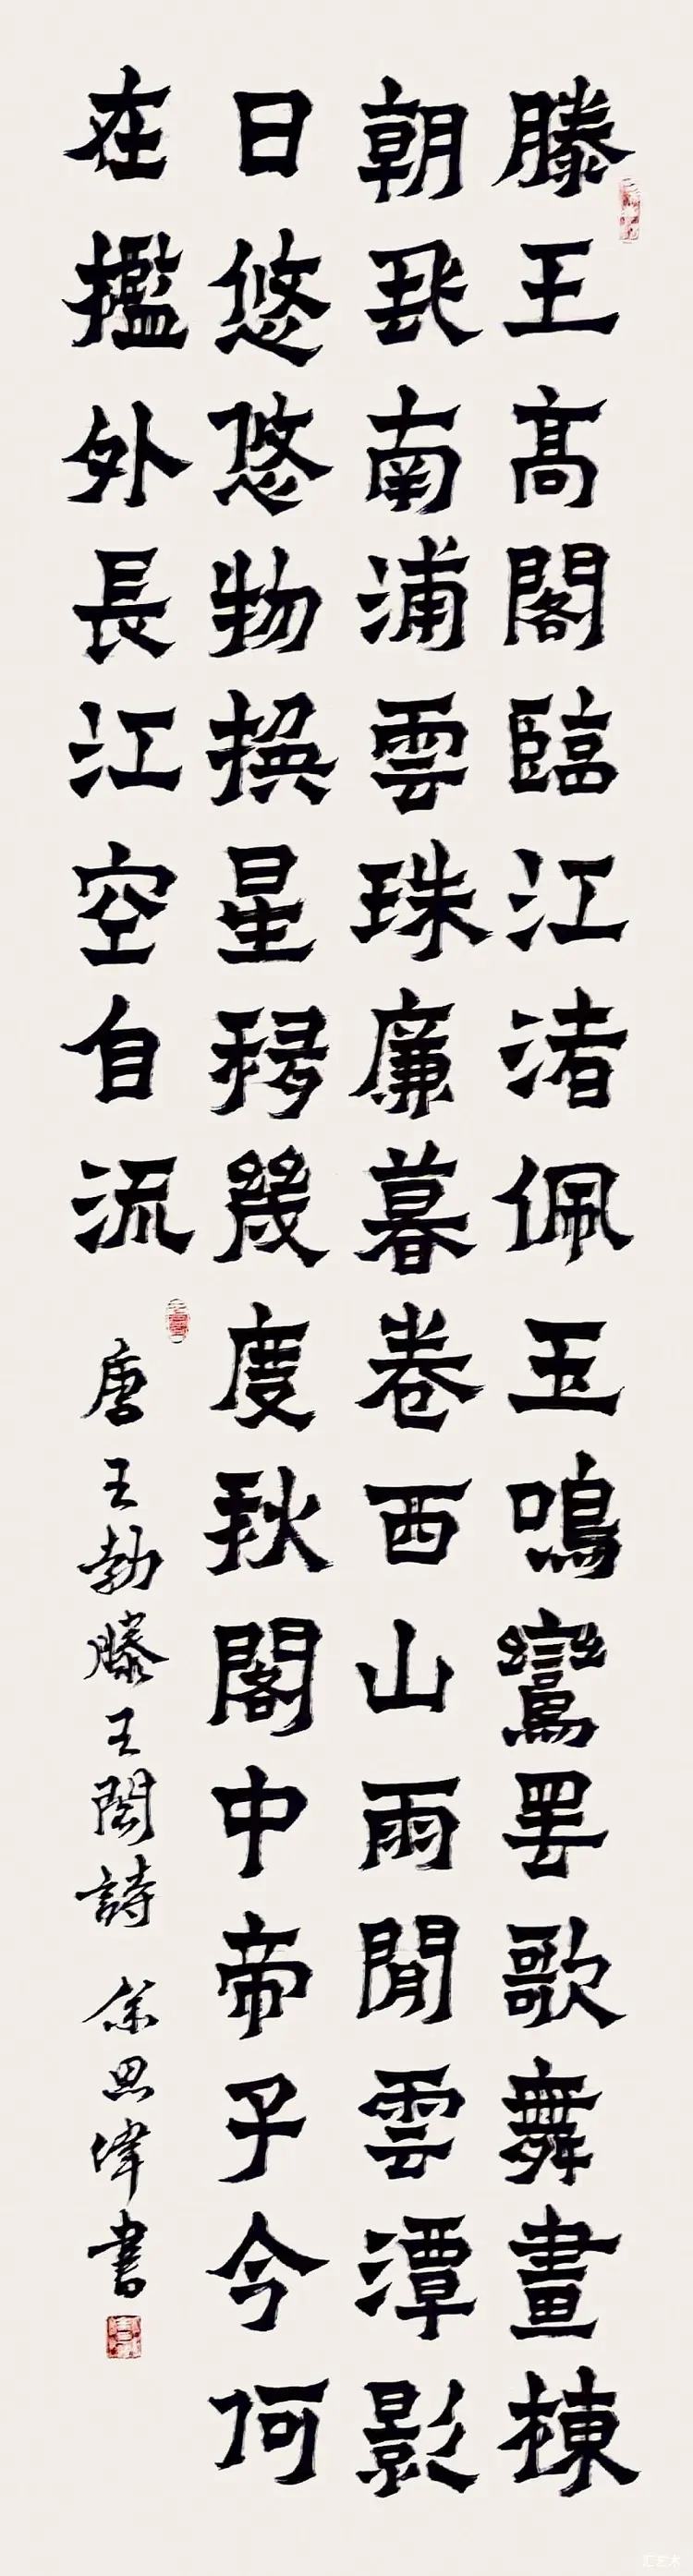 滕王高閣臨江渚佩玉鳴鸞罷歌舞畫棟
朝飛南浦雲珠廉暮卷西山雨閒雲潭影
日悠悠物換星移幾度秋閣中帝子今何
在檻外長江空自流 唐王勃滕王閣詩 余思偉書